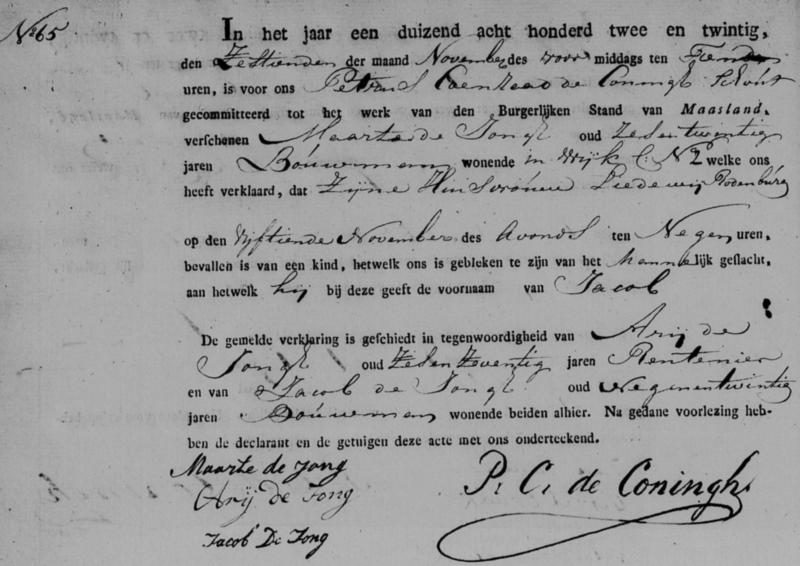 No 65
In het jaar een duizend acht honderd twee en twintig,
den Zestienden der maand November des voor middags ten Tien
uren, is voor ons Petrus Coenraad de Coningh Schout
gecommitteerd tot het werk van den Burgerlijken Stand van Maasland,
verschenen Maarte de Jong oud Zesentwintig
jaren Bouwman wonende in Wijk C. No 2 welke ons
heeft verklaard, dat Zijne Huisvrouw Liedewij Rodenburg
op den Vijftiende November des Avonds ten Negen uren,
bevallen is van een kind, hetwelk ons is gebleken te zijn van het Mannelijk geslacht,
aan hetwelk hij bij deze geeft de voornaam van Jacob
De gemelde verklaring is geschiedt in tegenwoordigheid van Arij de
Jong oud Zesenzeventig jaren Rentenier
en van Jacob de Jong oud Negenentwintig
jaren Bouwman wonende beiden alhier. Na gedane voorlezing heb-
ben de declarant en de getuigen deze acte met ons onderteekend.
Maarte de Jong
Arij de Jong
Jacob De Jong
P. C. de Coningh